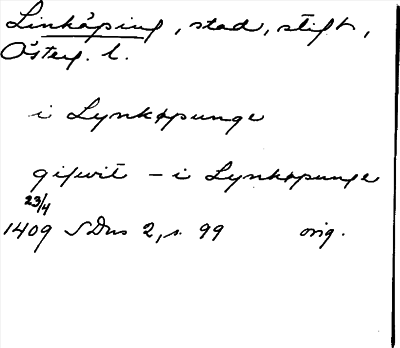 Linköping, stad, stift,
Österg. l.
i Lynkøpunge
gifwit – i Lynkøpunge
23/4
1409 SDns 2, s. 99 orig.